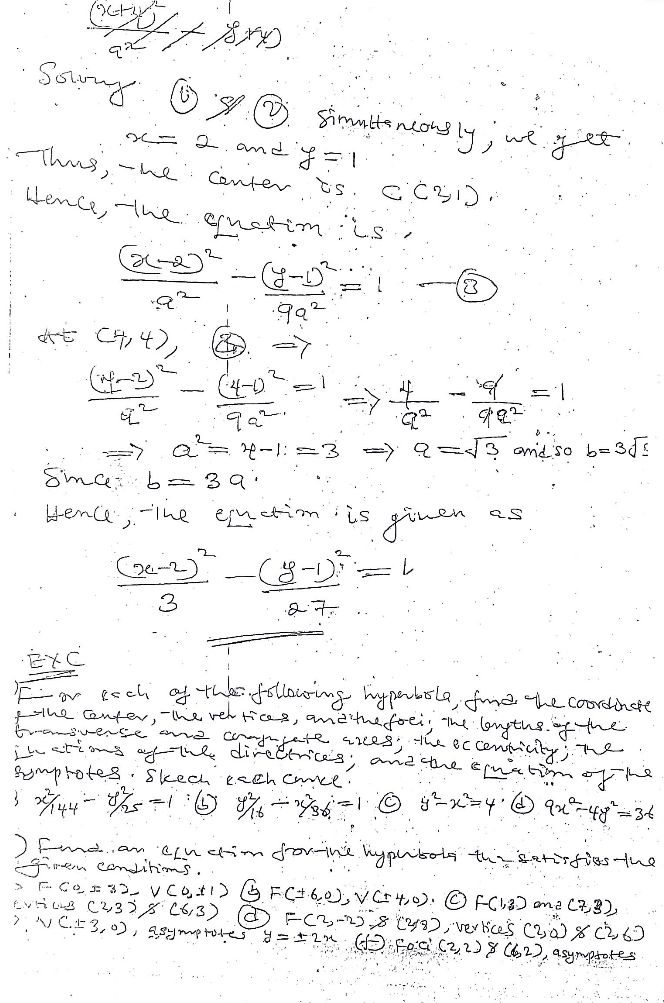 (x+y)²/a² - y+4)
Solving ① & ② simultaneously, we get
x = 2 and y = 1
Thus, the center is C(2,1).
Hence, the equation is,
(x-2)²/a² - (y-1)²/9a² = 1 — ③
At (4,4), ③ ⇒
(4-2)²/a² - (4-1)²/9a² = 1 ⇒ 4/a² - 9/9a² = 1
⇒ a² = 4-1 = 3 ⇒ a = √3 and so b = 3√3
Since b = 3a.
Hence, the equation is given as
(x-2)²/3 - (y-1)²/27 = 1
EXC
For each of the following hyperbola, find the coordinate
of the center, the vertices, and the foci; the lengths of the
transverse and conjugate axes; the eccentricity; the
equations of the directrices; and the equation of the
asymptotes. Skech each curve.
x²/144 - y²/25 = 1 (b) y²/16 - x²/36 = 1 (c) y²-x²=4 (d) 9x²-4y²=36
) Find an equation for the hyperbola that satisfies the
given conditions.
F(0,±3), V(0,±1) (b) F(±6,0), V(±4,0). (c) F(1,3) and (7,3),
vertices (2,3) & (6,3) (d) F(2,-2) & (2,8), vertices (2,0) & (2,6)
V(±3,0), asymptotes y=±2x (f) Foci (2,2) & (6,2), asymptotes